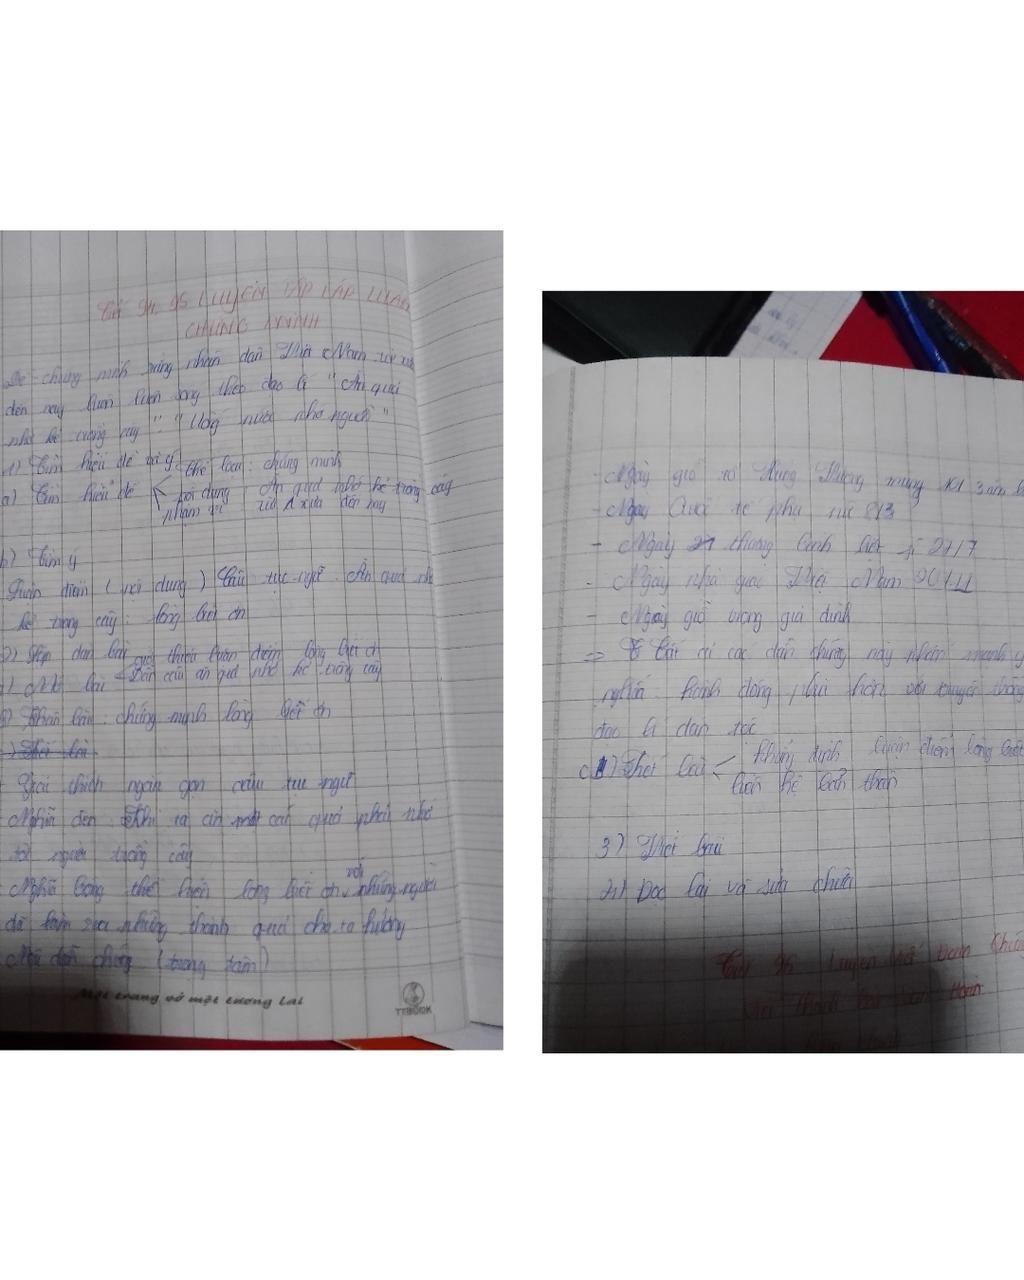 Tiết 94, 95 LUYỆN TẬP LẬP LUẬN
CHỨNG MINH
Đề chứng minh rằng nhân dân Việt Nam từ xưa
đến nay luôn luôn sống theo đạo lí "Ăn quả
nhớ kẻ trồng cây". "Uống nước nhớ nguồn"
1) Tìm hiểu đề và ý
thể loại: chứng minh
a) Tìm hiểu đề < nội dung: Ăn quả nhớ kẻ trồng cây
phạm vi từ xưa đến nay
b) Tìm ý
Luận điểm (nội dung) Câu tục ngữ: Ăn quả nhớ
kẻ trồng cây: lòng biết ơn
2) Lập dàn bài
giới thiệu luận điểm lòng biết ơn
) Mở bài < Dẫn câu ăn quả nhớ kẻ trồng cây
b) Thân bài: chứng minh lòng biết ơn
Giải thích ngắn gọn câu tục ngữ
Nghĩa đen: Khi ta ăn một quả phải nhớ
tới người trồng cây
với
Nghĩa bóng thể hiện lòng biết ơn những người
đã làm ra những thành quả cho ta hưởng
dẫn chứng (trọng tâm)
Một trang vở một tương lai
TTBOOK
- Ngày giỗ tổ Hùng Vương mùng 10/3
- Ngày Quốc tế phụ nữ 8/3
- Ngày thương binh liệt sĩ 27/7
- Ngày nhà giáo Việt Nam 20/11
- Ngày giỗ trong gia đình
=> Tất cả các dẫn chứng này nhấn mạnh ý
nghĩa: hành động, với truyền thống
đạo lí dân tộc
khẳng định luận điểm lòng biết
c) Kết bài <
liên hệ bản thân
3) Viết bài
4) Đọc lại và sửa chữa
Tiết 96 Luyện viết đoạn